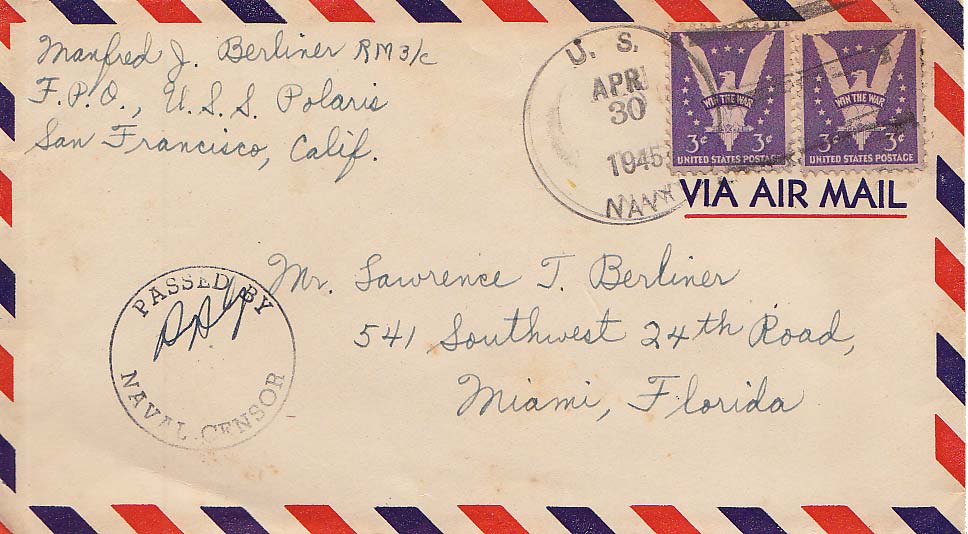 Manfred J. Berliner RM3/c
F.P.O., U.S.S. Polaris
San Francisco, Calif.
U. S.
APR
30
1945
NAVY
WIN THE WAR
3¢ 3¢
UNITED STATES POSTAGE
WIN THE WAR
3¢ 3¢
UNITED STATES POSTAGE
VIA AIR MAIL
Mr. Lawrence T. Berliner
541 Southwest 24th Road,
Miami, Florida
PASSED BY
NAVAL CENSOR